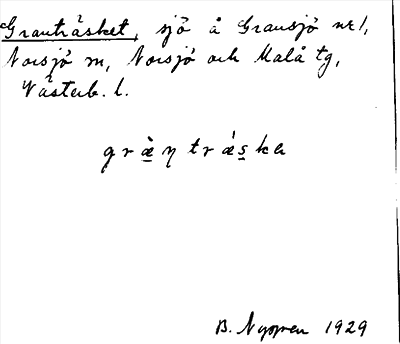 Granträsket, sjö å Gransjö nr 1,
Norsjö sn, Norsjö och Malå tg,
Västerb. l.
græ̀n trǽska
B. Nygren 1929